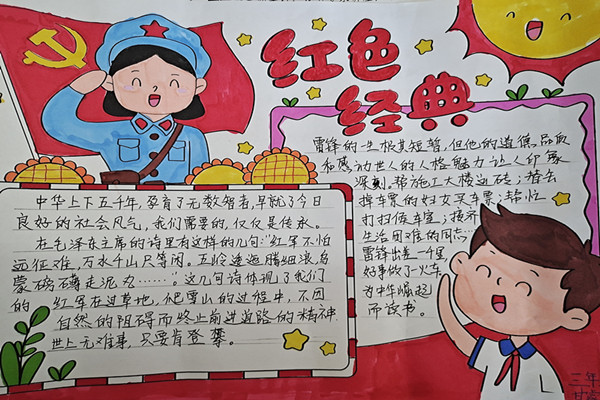 红色
经典
中华上下五千年,孕育了无数智者,早就了今日
良好的社会风气,我们需要的,仅仅是传承。
在毛泽东主席的诗里有这样的几句:"红军不怕
远征难,万水千山只等闲。五岭逶迤腾细浪,乌
蒙磅礴走泥丸……"。这几句诗体现了我们
的 红军在过草地,爬雪山的过程中,不因
自然的阻碍而终止前进道路的精神
世上无难事,只要肯登攀。
雷锋的一生极其短暂,但他的道德品质
和感动世人的人格魅力让人印象
深刻。帮施工大楼运砖;替丢
掉车票的妇女买车票;帮忙
打扫候车室;接济
生活困难的同志……
雷锋出差一千里,
好事做了一火车
为中华崛起
而读书。
三年